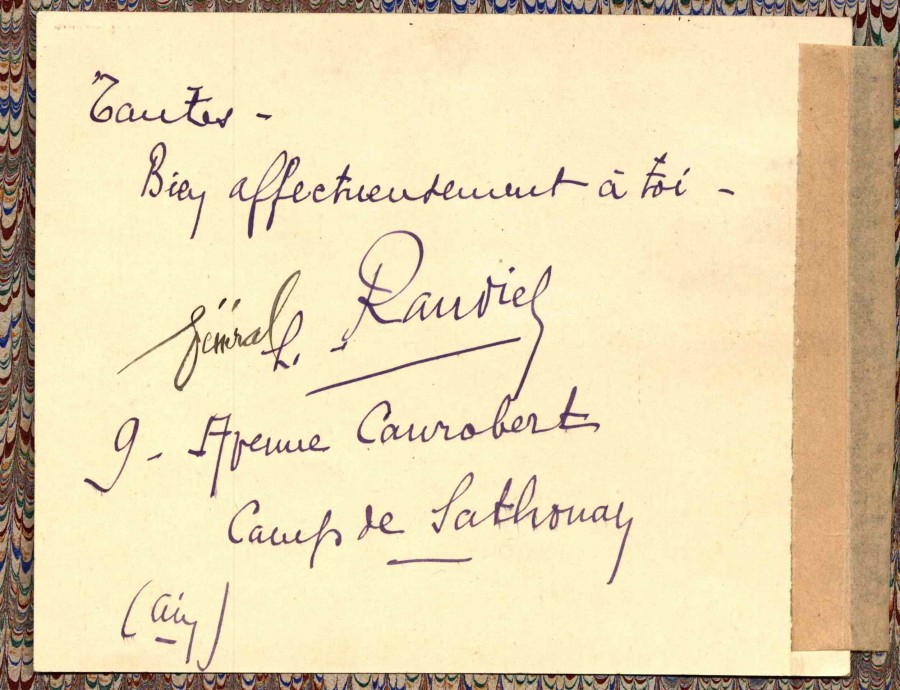 Tantes -
Bien affectueusement à toi -
Général L. Raudiel
9 - Avenue Canrobert
Camp de Sathonay
(Ain)